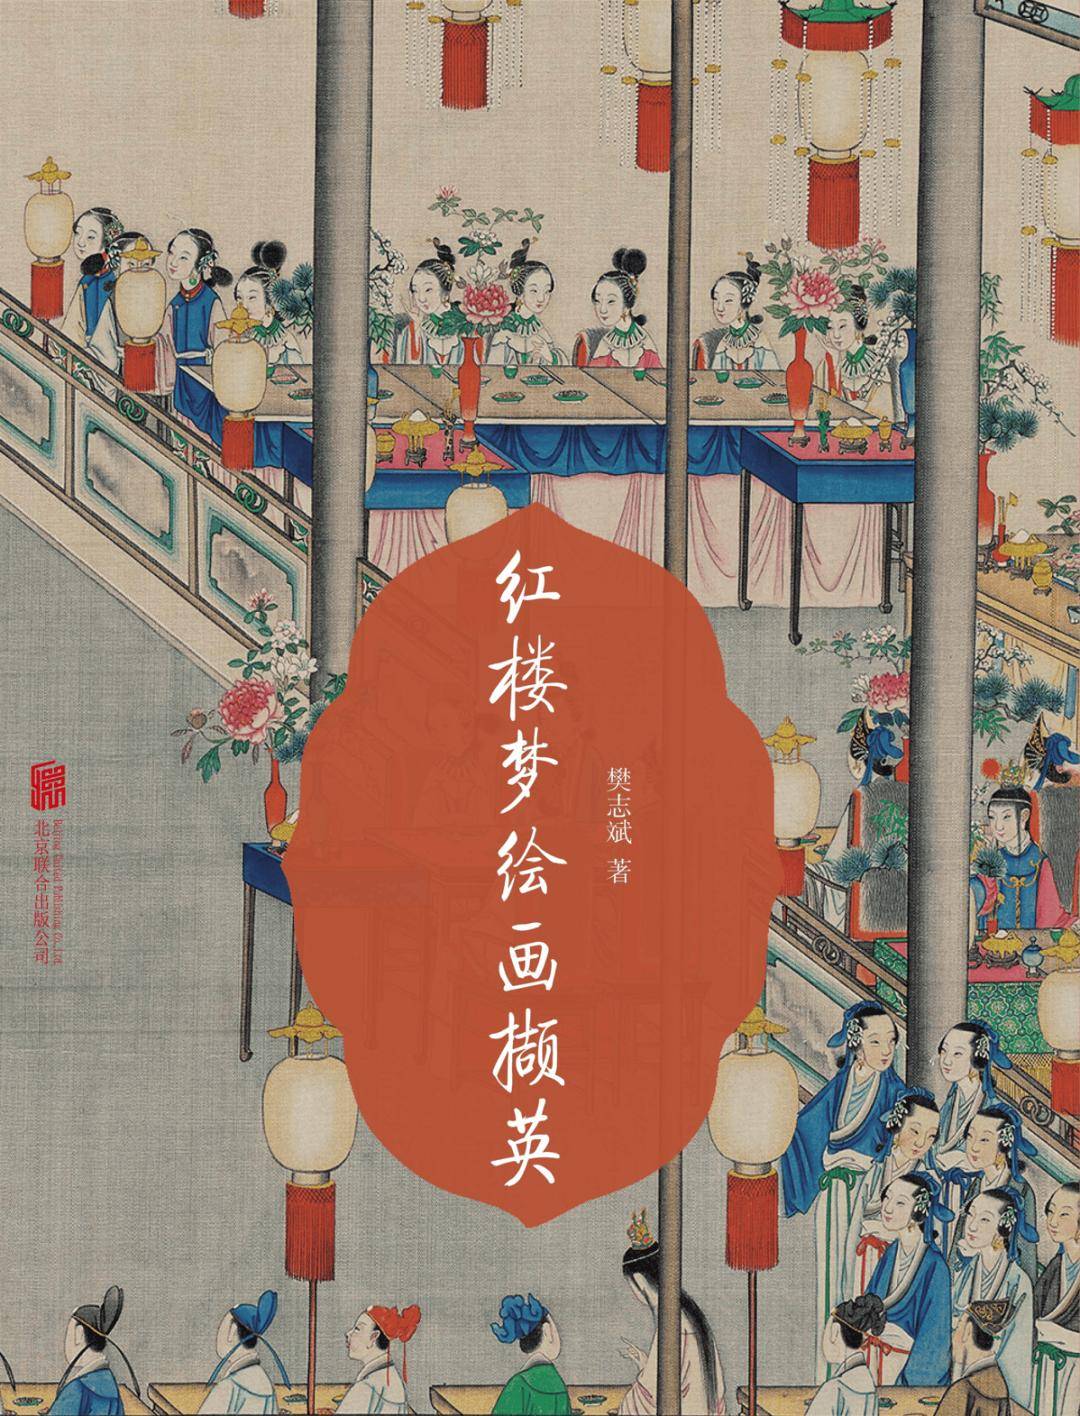 红楼梦绘画撷英
樊志斌 著
北京联合出版公司
Beijing United Publishing Co.,Ltd.